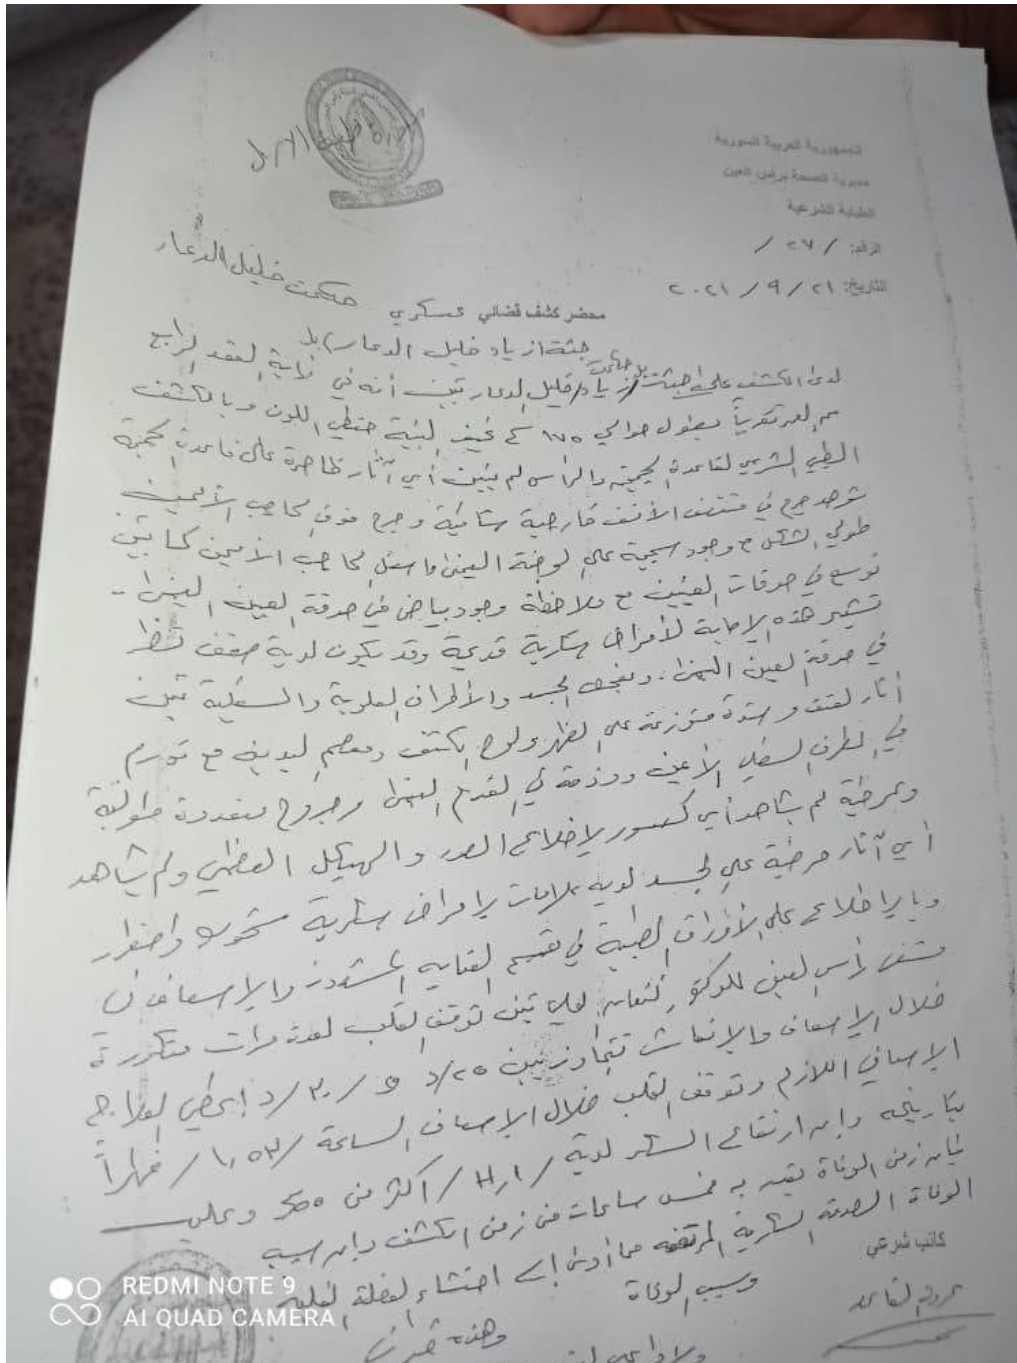 الجمهورية العربية السورية
مديرية الصحة برأس العين
الطبابة الشرعية
الرقم: / ٢٧ /
التاريخ: ٢١ / ٩ / ٢٠٢١
حكمت خليل الدعار
محضر كشف قضائي عسكري
جثة زياد خليل الدعار
لدى الكشف على جثة خليل الدعار تبين أنه في نهاية العقد الرابع
من العمر تقريباً بطول حوالي ١٧٥ سم نحيف البنية حنطي اللون وبالكشف
الطبي الشرعي لقاعدة الجمجمة والرأس لم يتبين أي آثار ظاهرة على قاعدة الجمجمة
يوجد جرح في منتصف الأنف خارجية وجرح فوق الحاجب الأيمن
طولي الشكل مع وجود على الوجنة اليمنى وأسفل الحاجب الأيمن كما تبين
توسع في حدقات العينين مع ملاحظة وجود بياض في حدقة العين اليمنى
تشير هذه الإصابة لأمراض سكرية قديمة وقد يكون لديه ضعف نظر
في حدقة العين اليمنى. وبفحص الجسد والأطراف العلوية والسفلية تبين
آثار لعنف وشدة متوزعة على الظهر ولوح الكتف ومعصم اليدين مع تورم
في الطرف السفلي الأيمن ووذمة في القدم اليمنى وجروح متعددة
وعرضية لم يشاهد أي كسور لأضلاع الصدر والهيكل العظمي ولم يشاهد
أي آثار مرضية على الجسد لديه علامات لأمراض سكرية شحوب واصفرار
وبالإطلاع على الأوراق الطبية في قسم العناية المشددة والإسعاف في
مشفى رأس العين للدكتور تبين توقف القلب لعدة مرات متكررة
خلال الإسعاف والإنعاش تتجاوز بين ٢٥/د و ٣٠/د أعطي العلاج
الإسعافي اللازم وتوقف القلب خلال الإسعاف الساعة /١,٥٣/ ظهراً
بتاريخه وإن ارتفاع السكر لديه أكثر من ٥٠٠ وعليه
فإن زمن الوفاة يقدر بـ خمس ساعات من زمن الكشف وإن سبب
الوفاة الصدمة السكرية المرتفعة مما أدى إلى احتشاء العضلة القلبية
وسبب الوفاة
كاتب شرعي
REDMI NOTE 9
AI QUAD CAMERA